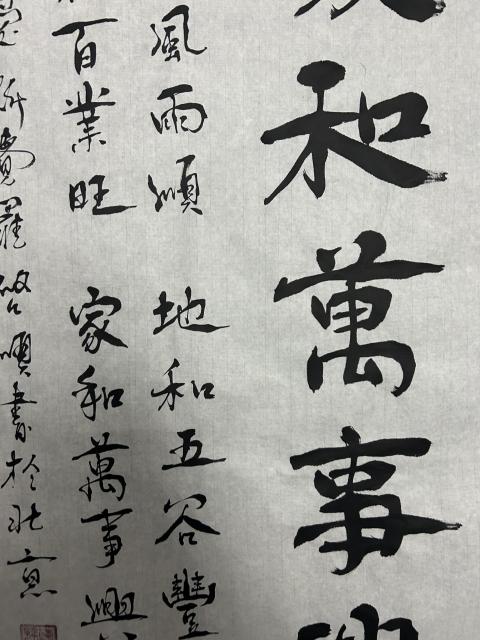 和萬事
風雨順 地和五谷豐
百業旺 家和萬事興
愛新覺羅啓順書於北京